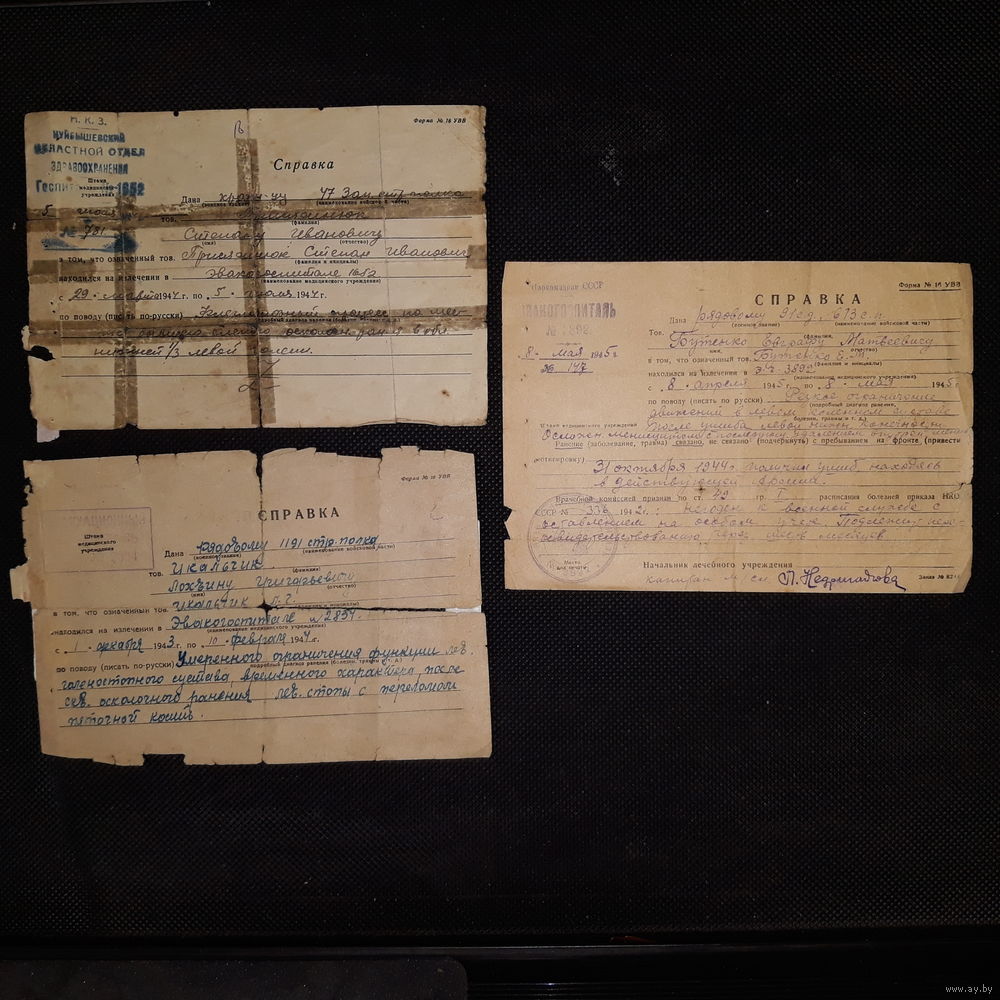 Н. К. З.
КУЙБЫШЕВСКИЙ
ОБЛАСТНОЙ ОТДЕЛ
ЗДРАВООХРАНЕНИЯ
Форма № 16 УВВ
Справка
Штамп
медицинского
учреждения
Дана
47 Зап стр полка
(наименование войсковой части)
5
№ 781
тов.
(фамилия)
Степану Ивановичу
(имя) (отчество)
в том, что означенный тов. Степан Иванович
(фамилия и инициалы)
находился на излечении в эвакогоспитале 1652
(наименование медицинского учреждения)
с 29 марта 1944 г. по 5 июля 1944 г.
по поводу (писать по-русски)
нижней 1/3 левой голени.
Наркомздрав СССР
ЭВАКОГОСПИТАЛЬ
Форма № 16 УВВ
СПРАВКА
Дана рядовому 91 сд, 613 с.п.
(военное звание) (наименование войсковой части)
8 мая 1945 г.
№ 147
Тов. Бутенко Евграфу Матвеевичу
(фамилия, имя, отчество)
в том, что означенный тов. Бутенко Е. М.
(фамилия и инициалы)
находился на излечении в э.г. 3892
(наименование медицинского учреждения)
с 8 апреля 1945 г. по 8 мая 1945 г.
по поводу (писать по русски) Резкое ограничение
(подробный диагноз ранения,
движений в левом коленном суставе
болезни, травмы и т. д.)
Штамп медицинского учреждения
после ушиба левой нижн. конечности
Ранение (заболевание, травма) связано, не связано (подчеркнуть) с пребыванием на фронте (привести
мотивировку) 31 октября 1944 г. получил ушиб, находясь
в действующей армии.
Врачебной комиссией признан по ст. 42 гр. I расписания болезней приказа НКО
СССР № 336 1942 г.: негоден к военной службе с
оставлением на особом учете. Подлежит пере-
освидетельствованию через шесть месяцев.
Место
для печати
Начальник лечебного учреждения
капитан м/сл
Заказ №
Форма № 16 УВВ
СПРАВКА
Штамп
медицинского
учреждения
Дана рядовому 1191 стр. полка
(военное звание) (наименование войсковой части)
тов. Цкальчик
(фамилия)
Григорьевичу
(имя) (отчество)
в том, что означенный тов. Цкальчик
(фамилия и инициалы)
находился на излечении в Эвакогоспитале № 2857.
(наименование медицинского учреждения)
с 1 декабря 1943 г. по 10 февраля 1944 г.
по поводу (писать по-русски) Умеренного ограничения функции лев.
подробный диагноз ранения (болезни, травмы и т. д.)
голеностопного сустава, временного характера, после
скв. осколочного ранения лев. стопы с переломом
пяточной кости.
www.ay.by